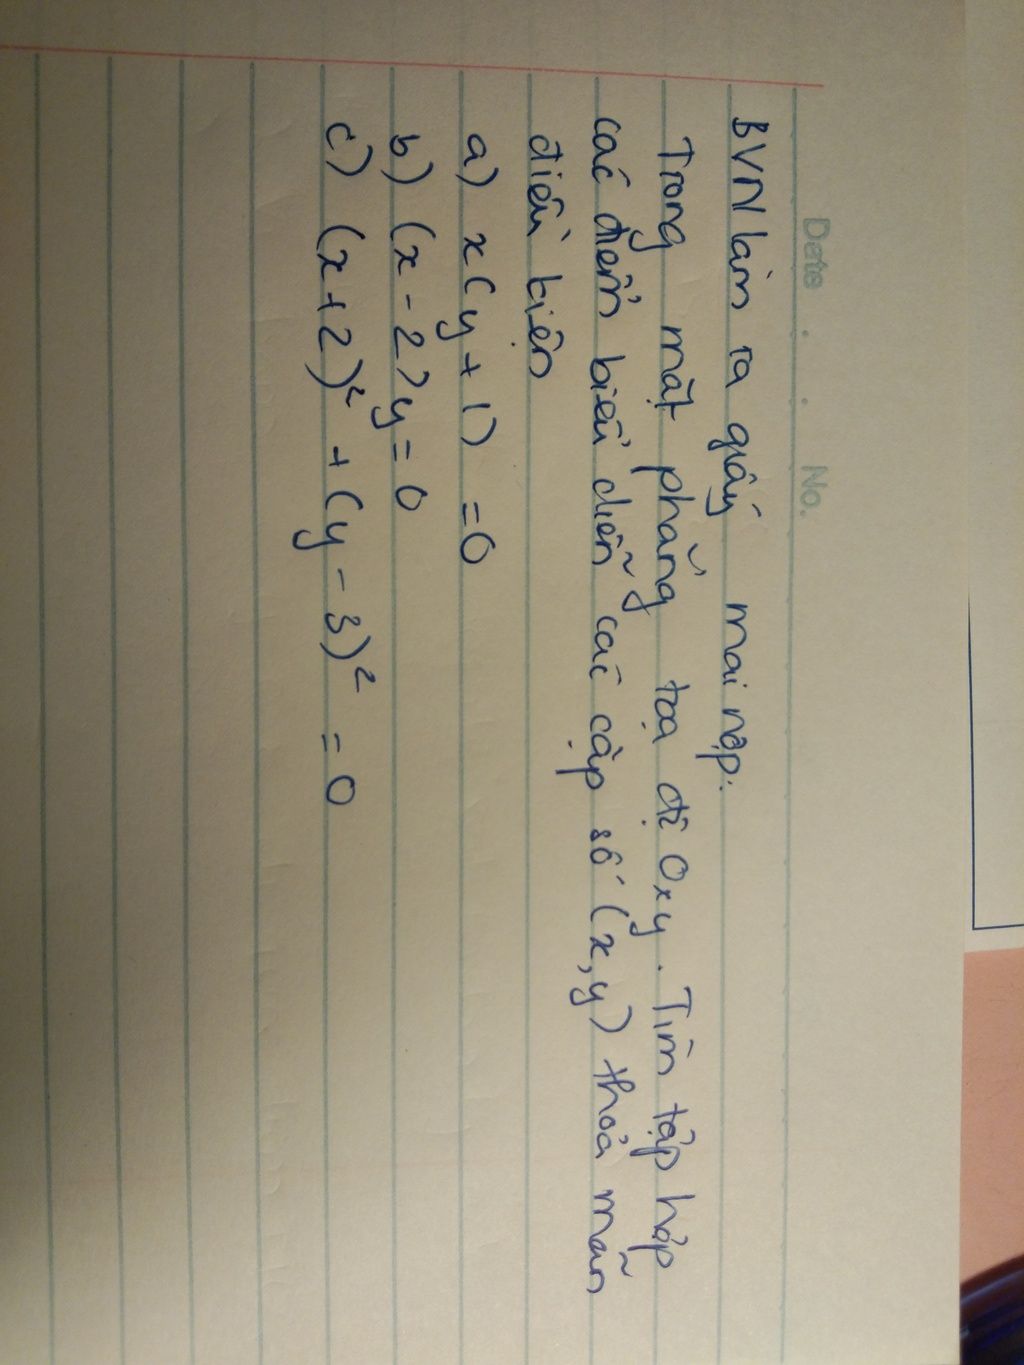 Date . . No.
BVN làm ra giấy mai nạp.
Trong mặt phẳng tọa độ Oxy. Tìm tập hợp
các điểm biểu diễn các cặp số (x,y) thoả mãn
điều kiện
a) x(y+1) = 0
b) (x-2)y = 0
c) (x+2)² + (y-3)² = 0